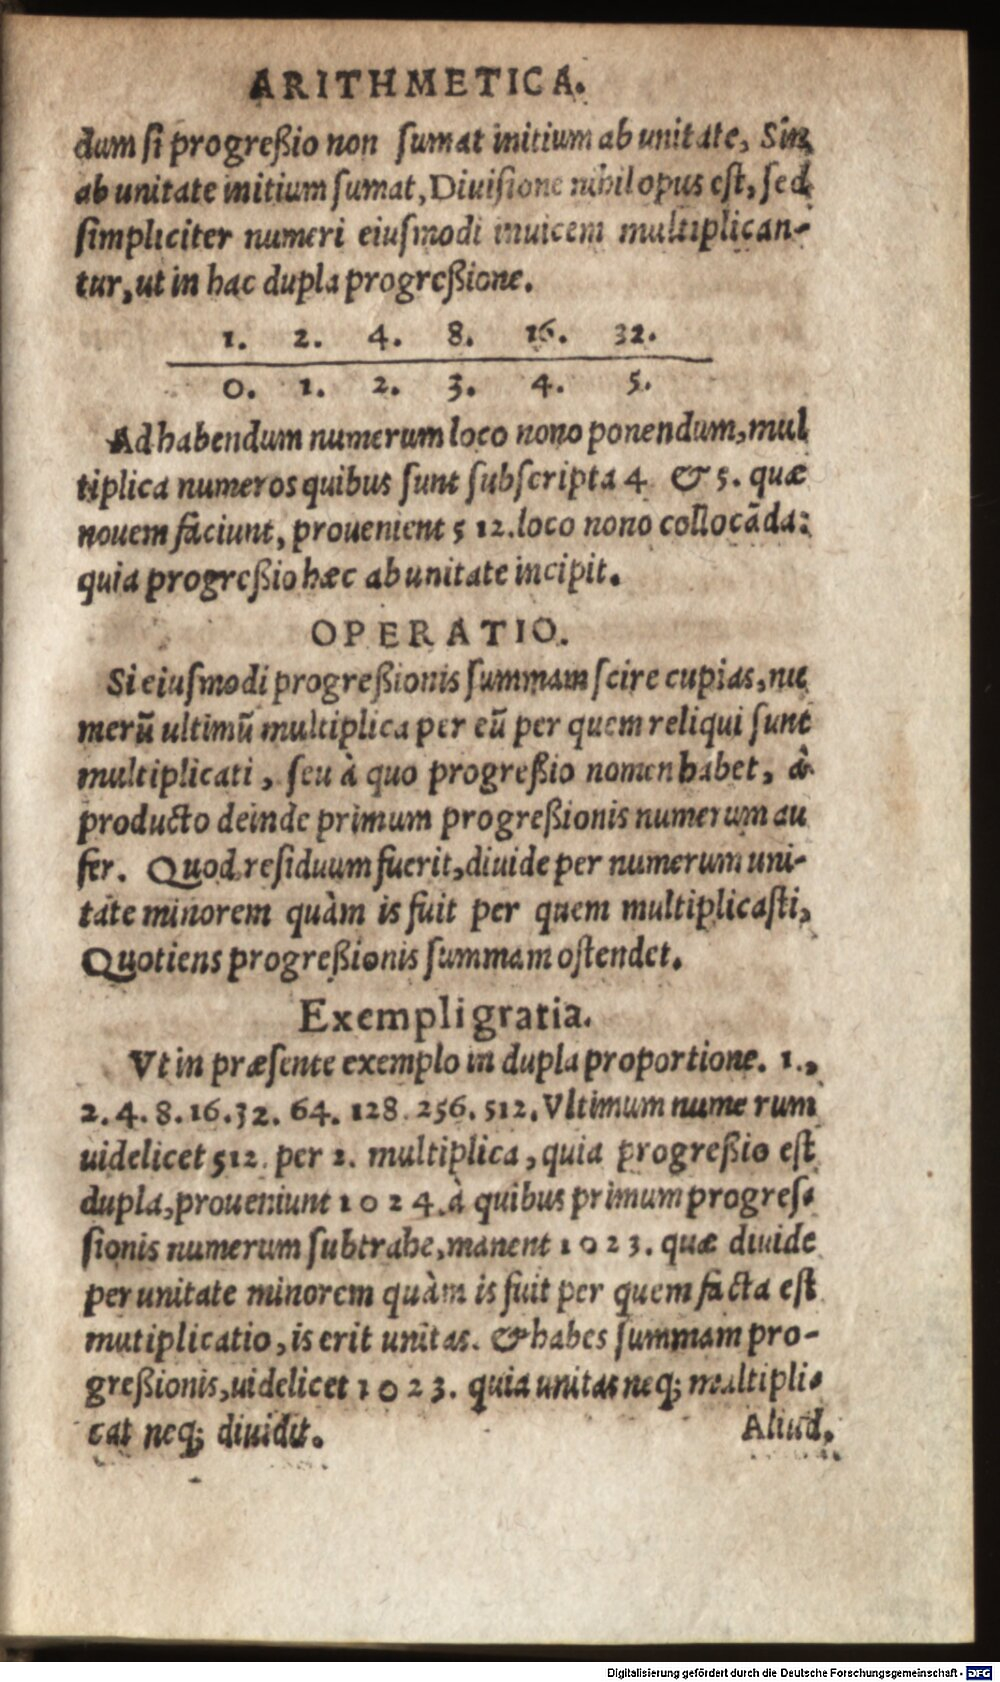 ARITHMETICA.
dum si progreßio non sumat initium ab unitate, Sin
ab unitate initium sumat, Diuisione nihil opus est, sed
simpliciter numeri eiusmodi inuicem multiplican-
tur, ut in hac dupla progreßione.
1. 2. 4. 8. 16. 32.
0. 1. 2. 3. 4. 5.
Ad habendum numerum loco nono ponendum, mul
tiplica numeros quibus sunt subscripta 4 & 5. quæ
nouem faciunt, prouenient 512. loco nono collocāda:
quia progreßio hæc ab unitate incipit.
OPERATIO.
Si eiusmodi progreßionis summam scire cupias, nu
merū ultimū multiplica per eū per quem reliqui sunt
multiplicati, seu à quo progreßio nomen habet, à
producto deinde primum progreßionis numerum au
fer. Quod residuum fuerit, diuide per numerum uni-
tate minorem quàm is fuit per quem multiplicasti,
Quotiens progreßionis summam ostendet.
Exempli gratia.
Vt in præsente exemplo in dupla proportione. 1.,
2. 4. 8. 16. 32. 64. 128. 256. 512. Vltimum nume rum
uidelicet 512. per 2. multiplica, quia progreßio est
dupla, proueniunt 1024. à quibus primum progres-
sionis numerum subtrahe, manent 1023. quæ diuide
per unitate minorem quàm is fuit per quem facta est
mutiplicatio, is erit unitas. & habes summam pro-
greßionis, uidelicet 1023. quia unitas neq; multipli-
cat neq; diuidit.
Aliud.
Digitalisierung gefördert durch die Deutsche Forschungsgemeinschaft - DFG